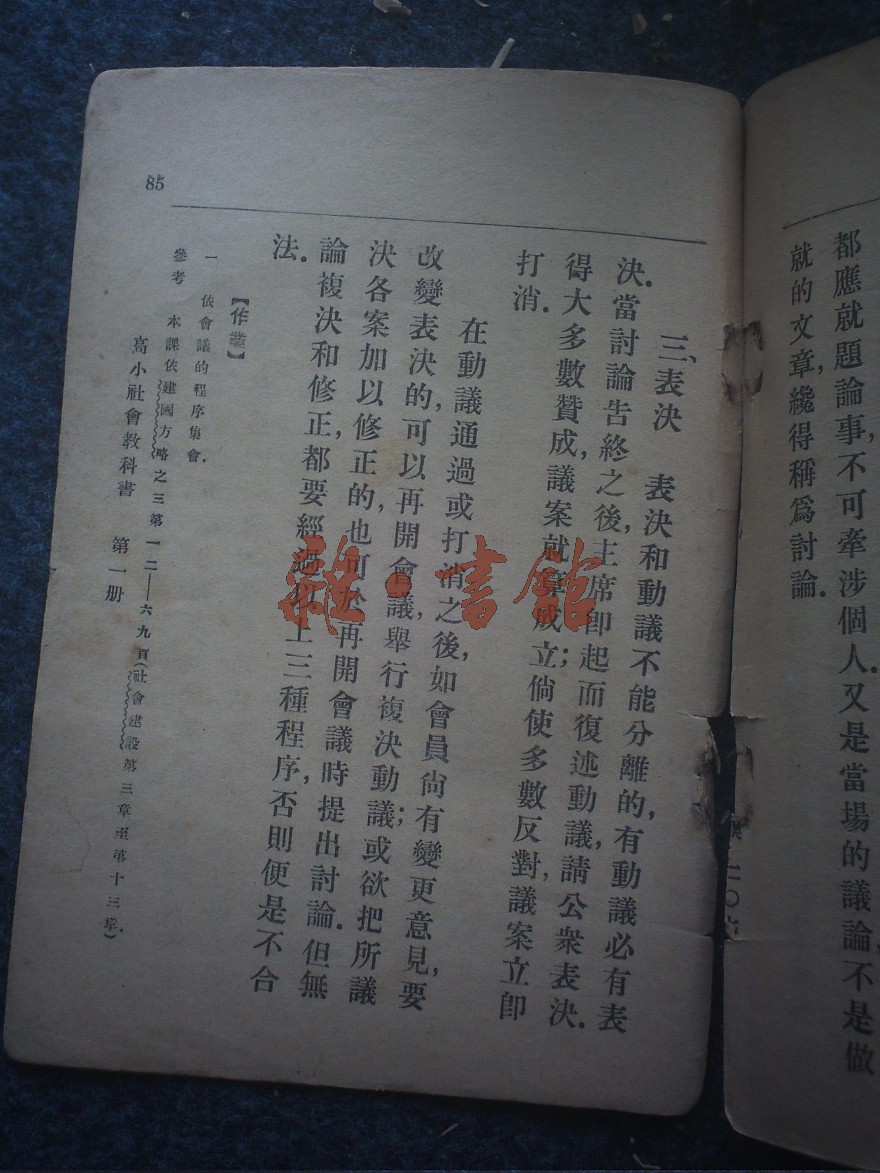 都應就題論事,不可牽涉個人.又是當場的議論,不是做
就的文章,纔得稱爲討論.
三、表決 表決和動議不能分離的,有動議必有表
決.當討論告終之後,主席卽起而復述動議,請公衆表決.
得大多數贊成,議案就算成立;倘使多數反對,議案立卽
打消.
在動議通過或打消之後,如會員尙有變更意見,要
改變表決的,可以再開會議,舉行複決動議;或欲把所議
決各案加以修正的,也可於再開會議時提出討論.但無
論複決和修正,都要經過以上三種程序,否則便是不合
法.
【作業】
一 依會議的程序集會.
參考 本課依建國方略之三第一二——六九頁(社會建設第三章至第十三章.)
高小社會教科書 第一册
85
雜·書館